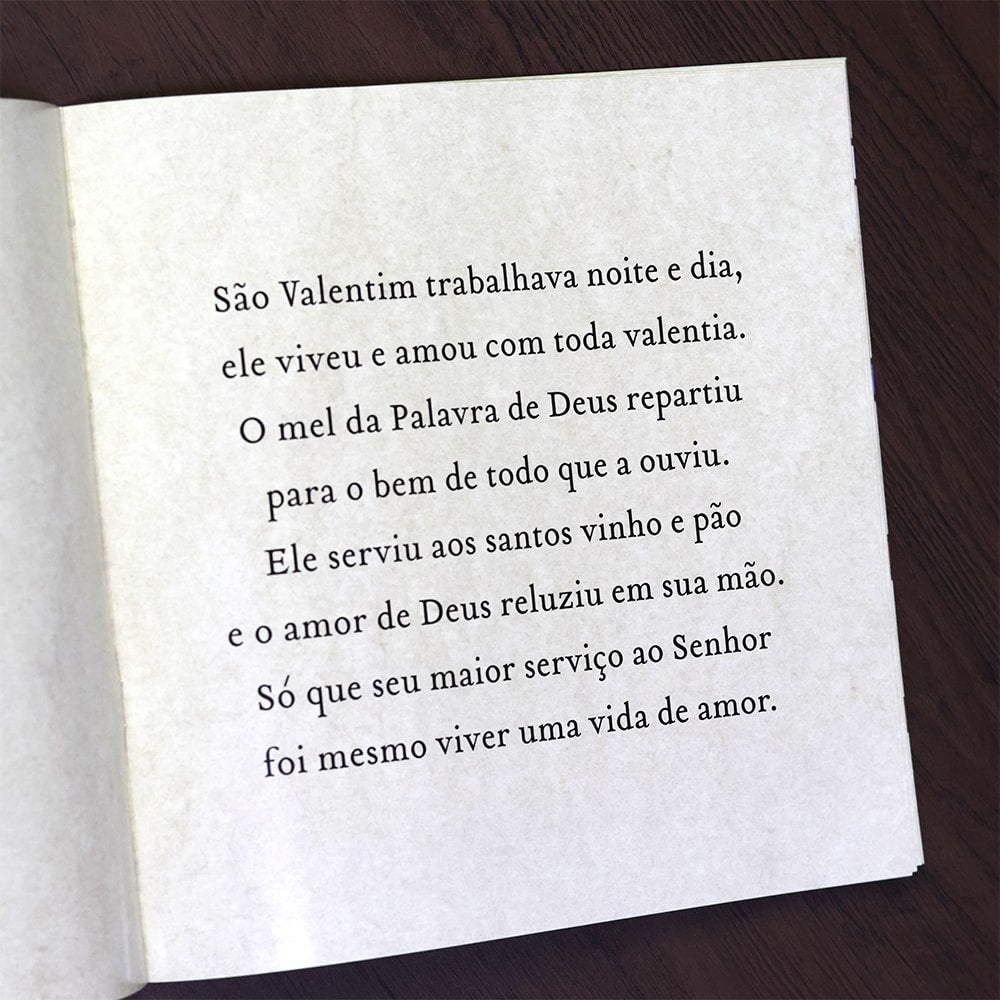 São Valentim trabalhava noite e dia,
ele viveu e amou com toda valentia.
O mel da Palavra de Deus repartiu
para o bem de todo que a ouviu.
Ele serviu aos santos vinho e pão
e o amor de Deus reluziu em sua mão.
Só que seu maior serviço ao Senhor
foi mesmo viver uma vida de amor.